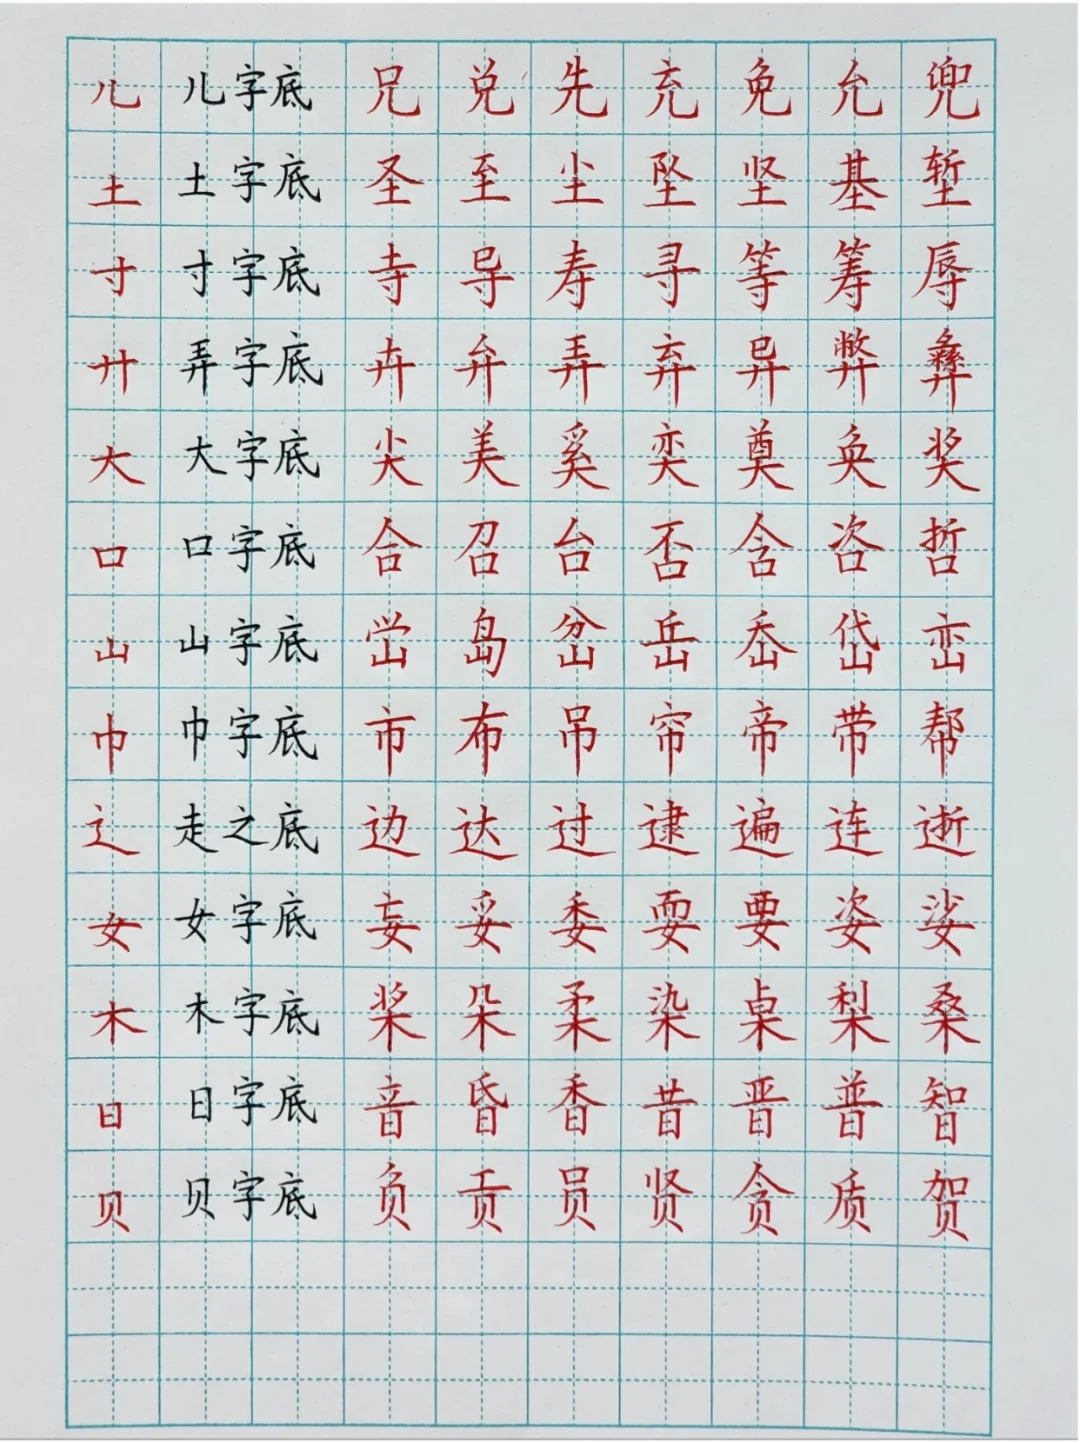 儿 儿字底 兄 兑 先 充 免 允 兜
土 土字底 圣 至 尘 坠 坚 基 堑
寸 寸字底 寺 导 寿 寻 等 筹 辱
廾 弄字底 卉 弁 弄 弃 异 弊 彝
大 大字底 尖 美 奚 奕 奠 奂 奖
口 口字底 合 召 台 否 含 咨 哲
山 山字底 峃 岛 岔 岳 岙 岱 峦
巾 巾字底 市 布 吊 帘 帝 带 帮
辶 走之底 边 达 过 逮 遍 连 逝
女 女字底 妄 妥 委 耍 要 姿 娑
木 木字底 桨 朵 柔 染 桌 梨 桑
日 日字底 音 昏 香 昔 晋 普 智
贝 贝字底 负 贡 员 贤 贪 质 贺